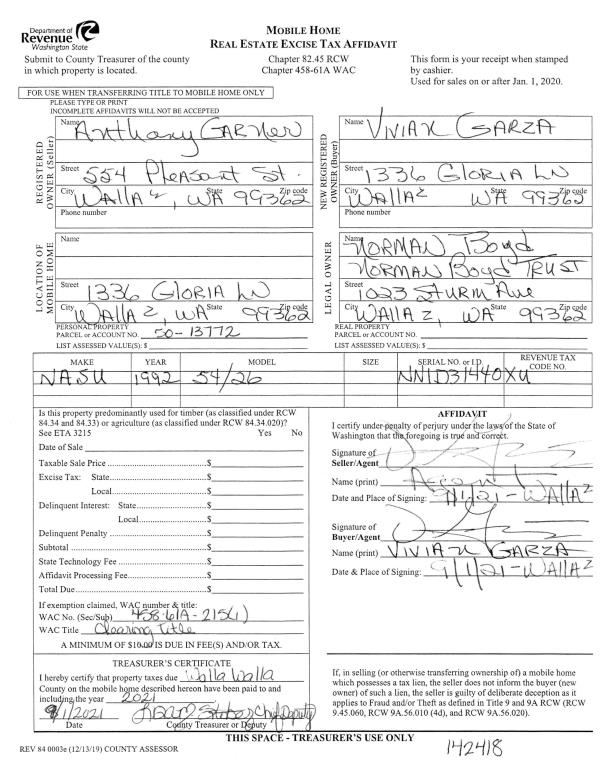 Department of
Revenue
Washington State
MOBILE HOME
REAL ESTATE EXCISE TAX AFFIDAVIT
Submit to County Treasurer of the county
in which property is located.
Chapter 82.45 RCW
Chapter 458-61A WAC
This form is your receipt when stamped
by cashier.
Used for sales on or after Jan. 1, 2020.
FOR USE WHEN TRANSFERRING TITLE TO MOBILE HOME ONLY
PLEASE TYPE OR PRINT
INCOMPLETE AFFIDAVITS WILL NOT BE ACCEPTED
REGISTERED
OWNER (Seller)
Name Anthony GARNER
Street 554 Pleasant St.
City WAllA 2, State WA Zip code 99362
Phone number
NEW REGISTERED
OWNER (Buyer)
Name VIVIAN GARZA
Street 1336 GLORIA LN
City WAllA 2 State WA Zip code 99362
Phone number
LOCATION OF
MOBILE HOME
Name
Street 1336 GLORIA LN
City WAllA 2, State WA Zip code 99362
PERSONAL PROPERTY
PARCEL or ACCOUNT NO. 50-13772
LIST ASSESSED VALUE(S): $
LEGAL OWNER
Name NORMAN Boyd
NORMAN Boyd TRUST
Street 1023 STURM Ave
City WAllA 2, State WA Zip code 99362
REAL PROPERTY
PARCEL or ACCOUNT NO.
LIST ASSESSED VALUE(S): $
MAKE YEAR MODEL SIZE SERIAL NO. or I.D. REVENUE TAX CODE NO.
NASU 1992 54/26 NNID31440XU
Is this property predominantly used for timber (as classified under RCW
84.34 and 84.33) or agriculture (as classified under RCW 84.34.020)?
See ETA 3215 Yes No
Date of Sale
Taxable Sale Price $
Excise Tax: State $
Local $
Delinquent Interest: State $
Local $
Delinquent Penalty $
Subtotal $
State Technology Fee $
Affidavit Processing Fee $
Total Due $
If exemption claimed, WAC number & title:
WAC No. (Sec/Sub) 458-61A-215(1)
WAC Title Clearing Title
A MINIMUM OF $10.00 IS DUE IN FEE(S) AND/OR TAX.
AFFIDAVIT
I certify under penalty of perjury under the laws of the State of
Washington that the foregoing is true and correct.
Signature of
Seller/Agent
Name (print)
Date and Place of Signing: 9/1/21-WAllA2
Signature of
Buyer/Agent
Name (print) VIVIAN GARZA
Date & Place of Signing: 9/1/21-WAllA2
TREASURER'S CERTIFICATE
I hereby certify that property taxes due Walla Walla
County on the mobile home described hereon have been paid to and
including the year 2021
9/1/2021
Date County Treasurer or Deputy
If, in selling (or otherwise transferring ownership of) a mobile home
which possesses a tax lien, the seller does not inform the buyer (new
owner) of such a lien, the seller is guilty of deliberate deception as it
applies to Fraud and/or Theft as defined in Title 9 and 9A RCW (RCW
9.45.060, RCW 9A.56.010 (4d), and RCW 9A.56.020).
THIS SPACE - TREASURER'S USE ONLY
REV 84 0003e (12/13/19) COUNTY ASSESSOR
142418